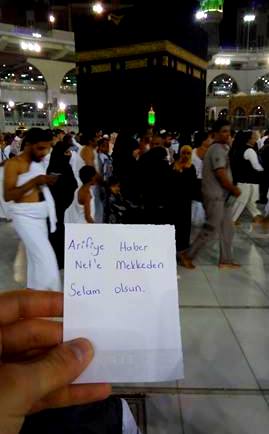 Arifiye Haber
Net'e Mekkeden
Selam olsun.